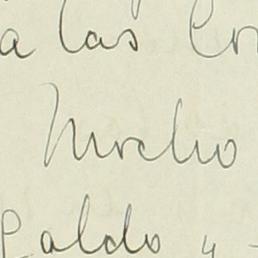 a las
Mucho
Galdo y